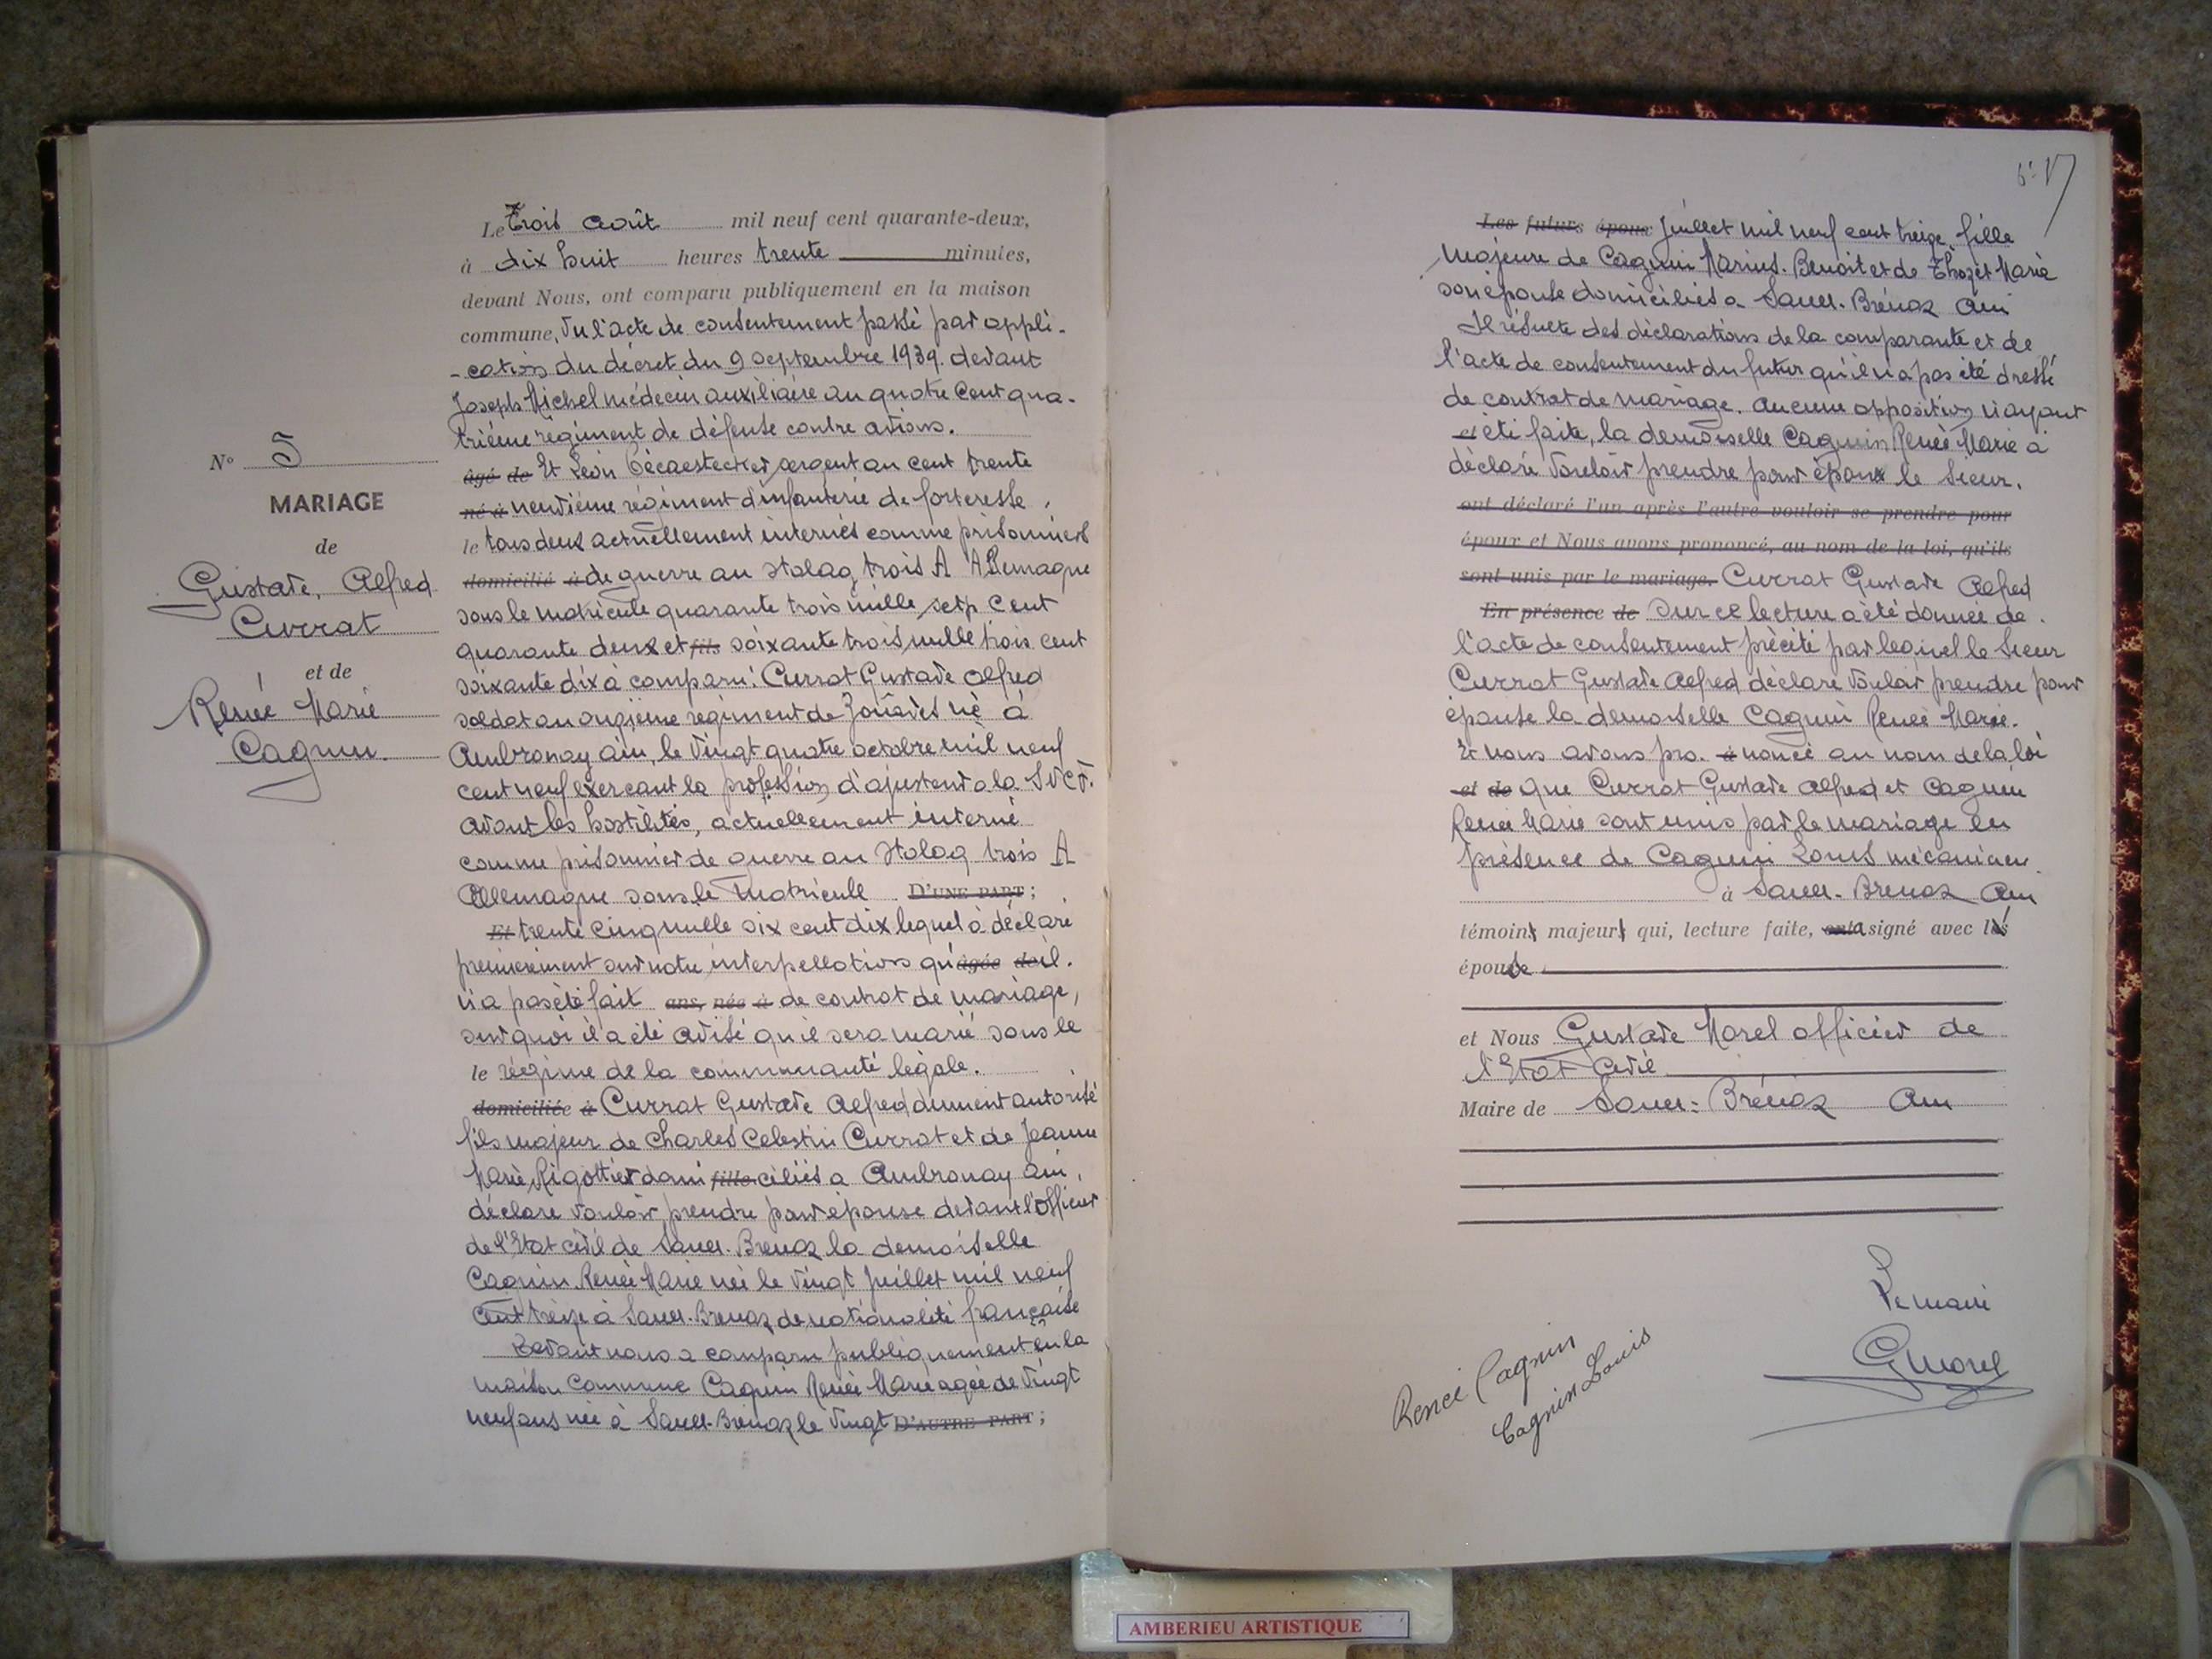 N° 5
MARIAGE
de
Gustave, Alfred
Currat
et de
Renée Marie
Cagnin.
Le trois Août mil neuf cent quarante-deux,
à dix huit heures trente minutes,
devant Nous, ont comparu publiquement en la maison
commune, Vu l'acte de consentement passé par appli-
-cation du décret du 9 septembre 1939. devant
Joseph Michel médecin auxiliaire au quatre cent qua-
trième régiment de défense contre avions.
âgé de Et Léon sergent au cent trente
né à neuvième régiment d'infanterie de forteresse,
le tous deux actuellement internés comme prisonniers
domicilié à de guerre au Stalag trois A Allemagne
sous le matricule quarante trois mille setp cent
quarante deux et fils soixante trois mille trois cent
soixante dix à comparu: Currat Gustave Alfred
soldat au onzième régiment de Zouaves né à
Ambronay ain, le vingt quatre octobre mil neuf
cent neuf exerçant la profession d'ajusteur a la
avant les hostilités, actuellement interné
comme prisonnier de guerre au Stalag trois A
Allemagne sous le Matricule D'UNE PART;
Et trente cinq mille six cent dix lequel à déclaré
premièrement sur notre interpellation qu'âgée de il.
n'a pas été fait ans, née à de contrat de mariage,
sur quoi il a été avisé qu'il sera marié sous le
le régime de la communauté légale.
domiciliée à Currat Gustave Alfred dument autorisé
fils majeur de Charles Celestin Currat et de Jeanne
Marie Rigottier domi fille ciliés a Ambronay ain,
déclare vouloir prendre pour épouse devant l'officier
de l'Etat civil de Sault-Brenaz la demoiselle
Cagnin Renée Marie née le vingt juillet mil neuf
cent treize à Sault-Brenaz de nationalité française
Devant nous a comparu publiquement en la
maison Commune Cagnin Renée Marie agée de vingt
neuf ans née à Sault-Brenaz le vingt D'AUTRE PART;
Les futurs époux juillet mil neuf cent treize, fille
Majeure de Cagnin Marius. Benoit et de Thozet Marie
son épouse domiciliés a Sault-Brénaz Ain
Il résulte des déclarations de la comparante et de
l'acte de consentement du futur qu'il n'a pas été dressé
de contrat de mariage. Aucune opposition n'ayant
et été faite, la demoiselle Cagnin Renée Marie à
déclaré vouloir prendre pour époux le Sieur.
ont déclaré l'un après l'autre vouloir se prendre pour
époux et Nous avons prononcé, au nom de la loi, qu'ils
sont unis par le mariage. Currat Gustave Alfred
En présence de Sur ce lecture a été donnée de.
l'acte de consentement précité par lequel le Sieur
Currat Gustave Alfred déclare vouloir prendre pour
épouse la demoiselle Cagnin Renée Marie.
Et nous avons pro. à noncé au nom de la loi
et de que Currat Gustave Alfred et Cagnin
Renée Marie sont unis par le mariage en
présence de Cagnin Louis mécanicien
à Sault-Brenaz Ain
témoins majeurs qui, lecture faite, ont a signé avec les
épouse
et Nous Gustave Morel officier de
l'Etat Civil
Maire de Sault-Brénaz Ain
Le maire
GMorel
Renée Cagnin
Cagnin Louis
AMBERIEU ARTISTIQUE